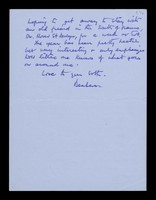 hoping to get away to stay with
an old friend in the South of France,
for a week or two.
The year has been pretty hectic
but very interesting & only emphasizes
how little one knows of what goes
on around one!
Love to you both,
Barbara